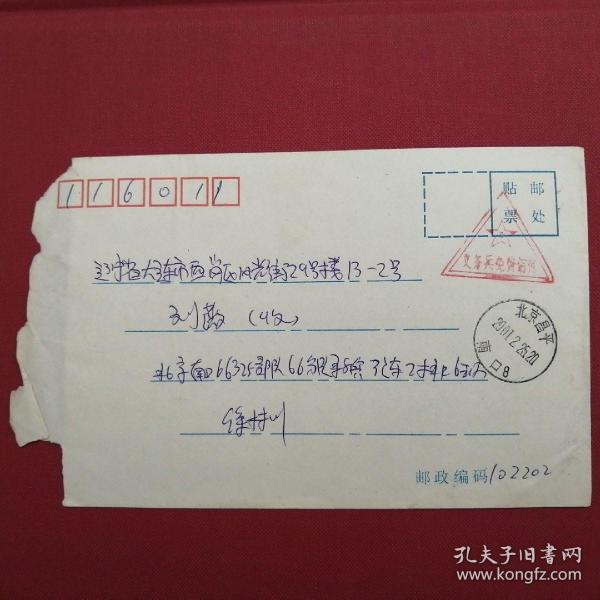 116011
贴 邮
票 处
义务兵免费信件
辽宁省大连市西岗区 街29号楼13-2号
刘 (收)
北京 66325部队66分队
徐村川
北京昌平
2001.2.25.20
南口8
邮政编码 102202
孔夫子旧书网
www.kongfz.com